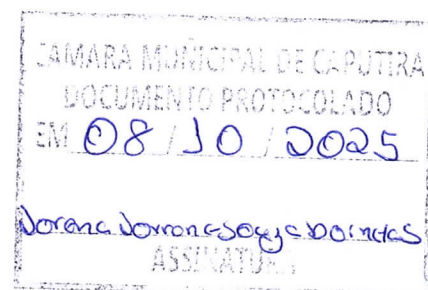 CAMARA MUNICIPAL DE CAPUTIRA
DOCUMENTO PROTOCOLADO
EM 08 / 10 / 2025
ASSINATURA